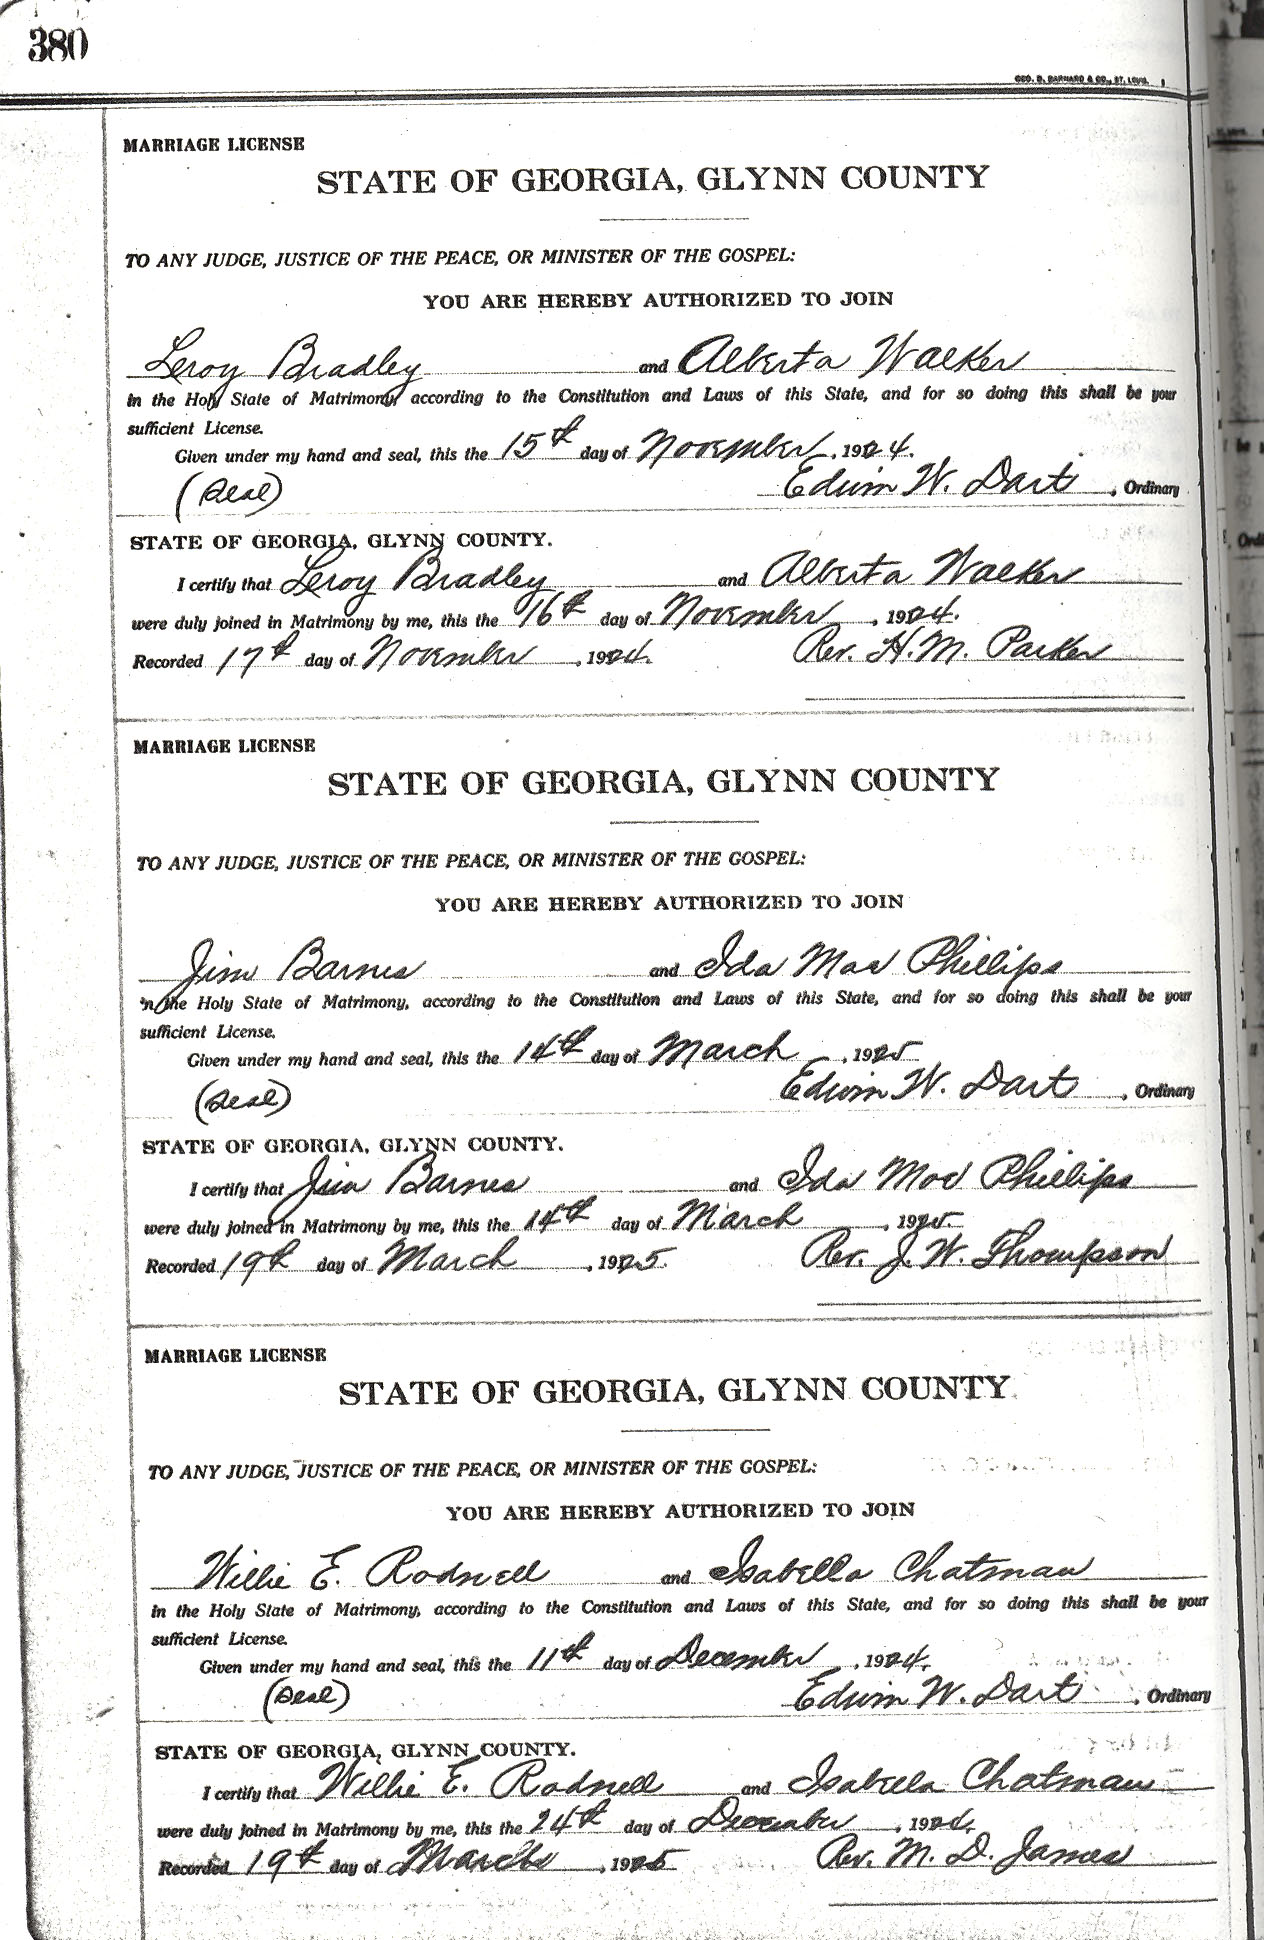 380
GEO. D. BARNARD & CO., ST. LOUIS.
MARRIAGE LICENSE
STATE OF GEORGIA, GLYNN COUNTY
TO ANY JUDGE, JUSTICE OF THE PEACE, OR MINISTER OF THE GOSPEL:
YOU ARE HEREBY AUTHORIZED TO JOIN
Leroy Bradley and Alberta Walker
in the Holy State of Matrimony, according to the Constitution and Laws of this State, and for so doing this shall be your
sufficient License.
Given under my hand and seal, this the 15th day of November, 1924.
(Seal) Edwin W. Dart, Ordinary
STATE OF GEORGIA, GLYNN COUNTY.
I certify that Leroy Bradley and Alberta Walker
were duly joined in Matrimony by me, this the 16th day of November, 1924.
Recorded 17th day of November, 1924. Rev. H. M. Parker
MARRIAGE LICENSE
STATE OF GEORGIA, GLYNN COUNTY
TO ANY JUDGE, JUSTICE OF THE PEACE, OR MINISTER OF THE GOSPEL:
YOU ARE HEREBY AUTHORIZED TO JOIN
Jim Barnes and Ida Mae Phillips
in the Holy State of Matrimony, according to the Constitution and Laws of this State, and for so doing this shall be your
sufficient License.
Given under my hand and seal, this the 14th day of March, 1925
(Seal) Edwin W. Dart, Ordinary
STATE OF GEORGIA, GLYNN COUNTY.
I certify that Jim Barnes and Ida Mae Phillips
were duly joined in Matrimony by me, this the 14th day of March, 1925
Recorded 19th day of March, 1925. Rev. J. W. Thompson
MARRIAGE LICENSE
STATE OF GEORGIA, GLYNN COUNTY
TO ANY JUDGE, JUSTICE OF THE PEACE, OR MINISTER OF THE GOSPEL:
YOU ARE HEREBY AUTHORIZED TO JOIN
Willie E. Rodnell and Isabella Chatman
in the Holy State of Matrimony, according to the Constitution and Laws of this State, and for so doing this shall be your
sufficient License.
Given under my hand and seal, this the 11th day of December, 1924.
(Seal) Edwin W. Dart, Ordinary
STATE OF GEORGIA, GLYNN COUNTY.
I certify that Willie E. Rodnell and Isabella Chatman
were duly joined in Matrimony by me, this the 24th day of December, 1924.
Recorded 19th day of March, 1925 Rev. M. D. James